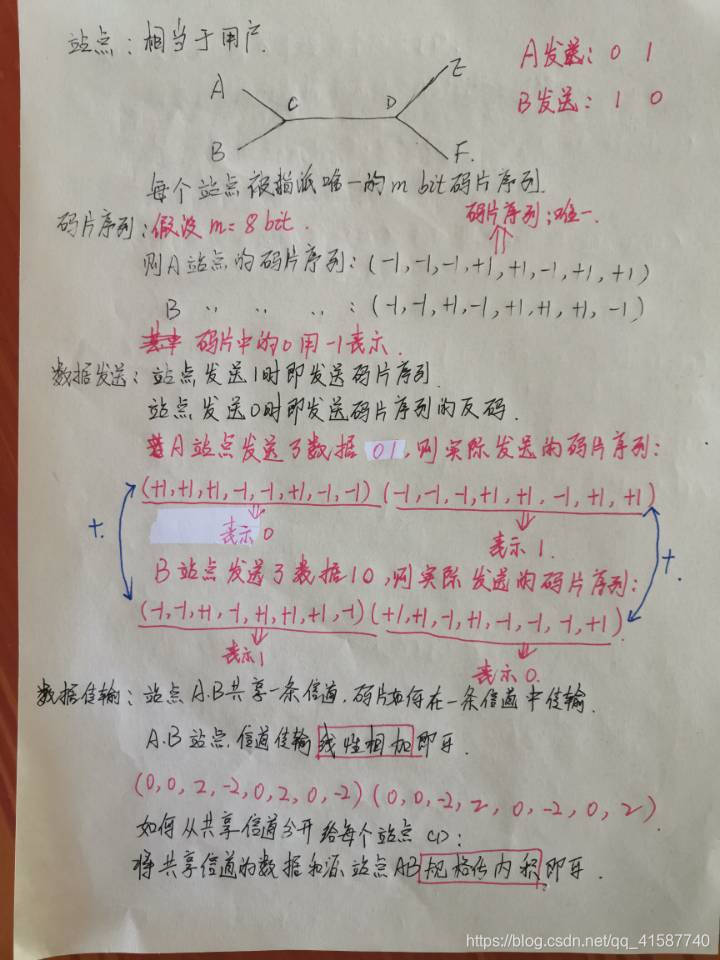 站点：相当于用户.
A发送：0 1
B发送：1 0
A B C D E F.
每个站点被指派唯一的m bit码片序列.
码片序列：假设m=8bit.
码片序列；唯一.
则A站点的码片序列：(-1,-1,-1,+1,+1,-1,+1,+1)
B 〃 〃 〃 ：(-1,-1,+1,-1,+1,+1,+1,-1)
码片中的0用-1表示.
数据发送：站点发送1时即发送码片序列.
站点发送0时即发送码片序列的反码.
A站点发送了数据01,则实际发送的码片序列：
(+1,+1,+1,-1,-1,+1,-1,-1) (-1,-1,-1,+1,+1,-1,+1,+1)
+.
表示0
表示1.
+.
B站点发送了数据10,则实际发送的码片序列：
(-1,-1,+1,-1,+1,+1,+1,-1)(+1,+1,-1,+1,-1,-1,-1,+1)
表示1
表示0.
数据传输：站点A.B共享一条信道,码片如何在一条信道中传输.
A.B站点.信道传输线性相加即可.
(0,0,2,-2,0,2,0,-2)(0,0,-2,2,0,-2,0,2)
如何从共享信道分开给每个站点CD：
将共享信道的数据和源站点AB规格化内积即可.
https://blog.csdn.net/qq_41587740